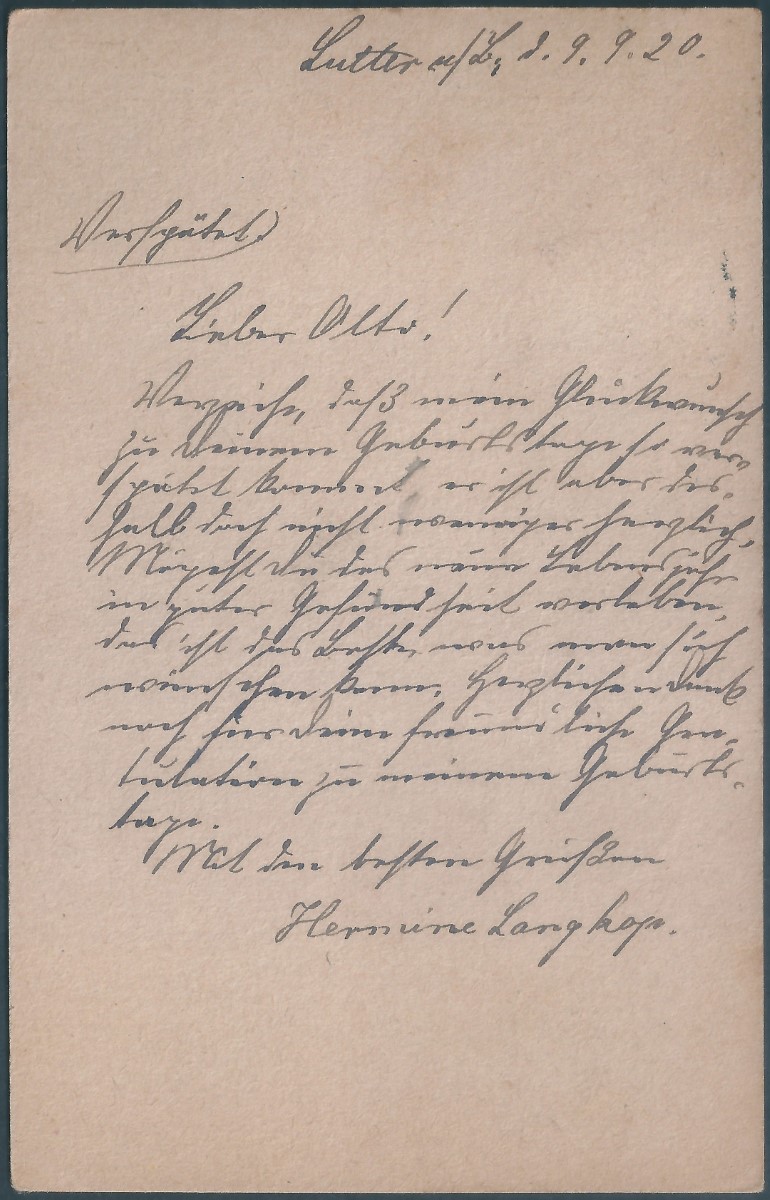 Lutter a/B, d. 9. 9. 20.
Verspätet!
Lieber Otto!
Verzeihe, daß mein Glückwunsch
zu Deinem Geburtstage so ver-
spätet kommt, er ist aber des-
halb doch nicht weniger herzlich.
Mögest Du das neue Lebensjahr
in guter Gesundheit verleben,
das ist das Beste, was man sich
wünschen kann. Herzlichen Dank
noch für Deine freundliche Gra-
tulation zu meinem Geburts-
tage.
Mit den besten Grüßen
Hermine Langkop.